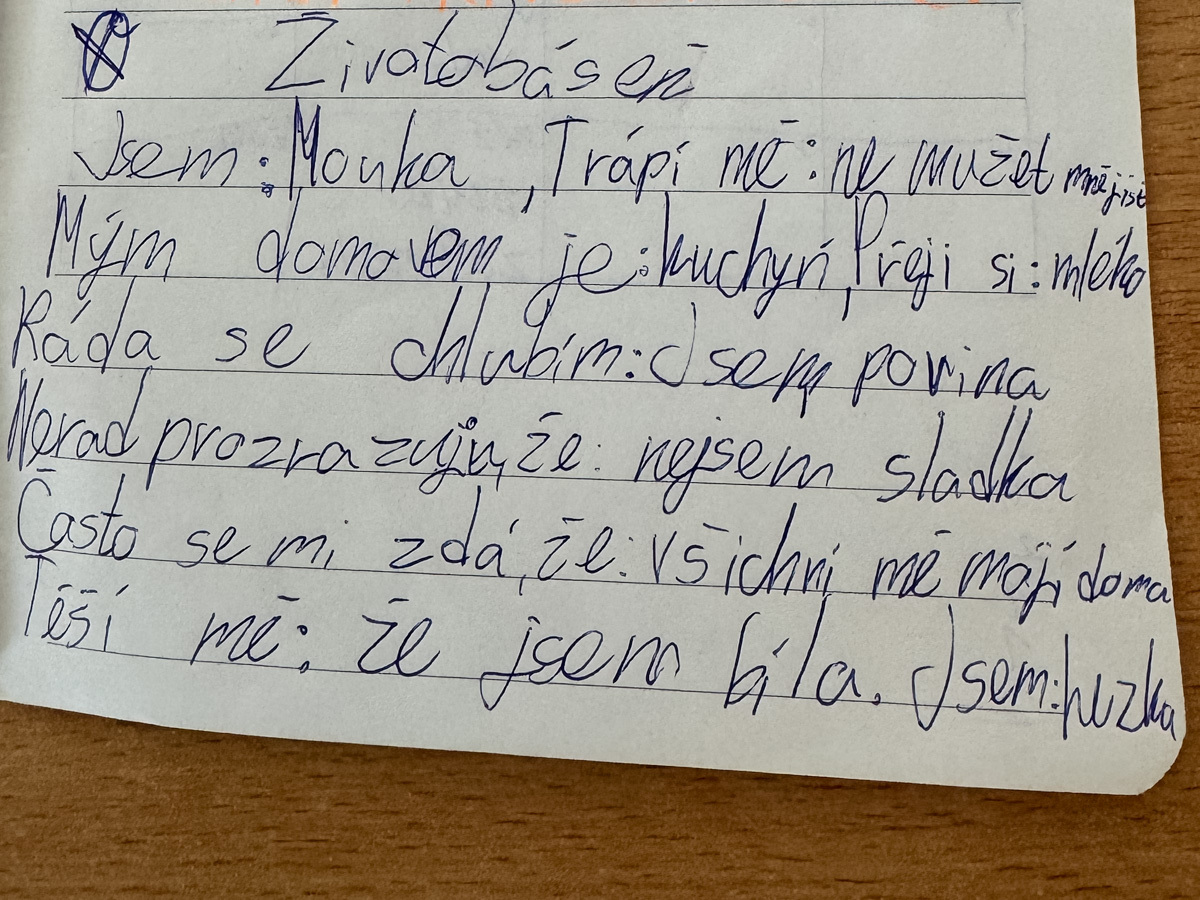 Životobáseň
Jsem: Mouka, Trápí mě: ne mužet mnějíst
Mým domovem je: kuchyň, Přeji si: mléko
Ráda se chlubím: Jsem povina
Nerad prozrazuju, že: nejsem sladka
Často se mi zdá, že: všichni mě mají doma
Těší mě: že jsem bíla. Jsem: hezka